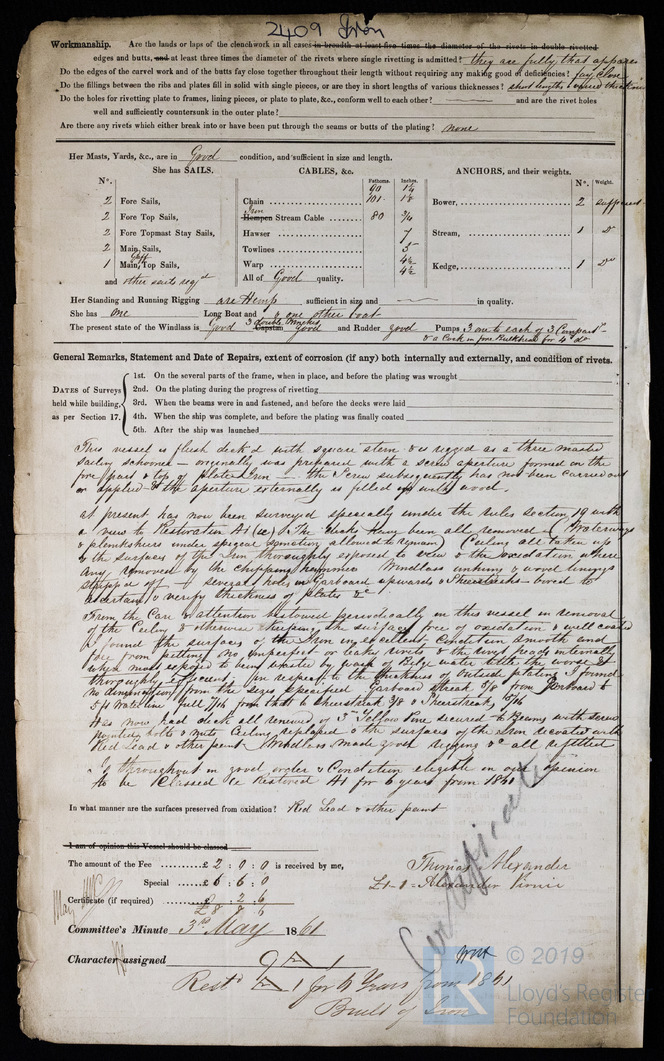 2409 Iron
Workmanship. Are the lands or laps of the clenchwork in all cases in breadth at least five times the diameter of the rivets in double rivetted
edges and butts, and at least three times the diameter of the rivets where single rivetting is admitted? they are fully that appears
Do the edges of the carvel work and of the butts fay close together throughout their length without requiring any making good of deficiencies? fay close
Do the fillings between the ribs and plates fill in solid with single pieces, or are they in short lengths of various thicknesses? short lengths
Do the holes for rivetting plate to frames, lining pieces, or plate to plate, &c., conform well to each other? and are the rivet holes
well and sufficiently countersunk in the outer plate?
Are there any rivets which either break into or have been put through the seams or butts of the plating? none
Her Masts, Yards, &c., are in Good condition, and sufficient in size and length.
She has SAILS. CABLES, &c. Fathoms. Inches. ANCHORS, and their weights. Nº. Weight.
Nº.
90
2 Fore Sails, Chain 101 Bower, 2
2 Fore Top Sails, Iron Hempen Stream Cable 80 3/4
2 Fore Topmast Stay Sails, Hawser 7 Stream, 1 Do
2 Main Sails, Towlines 5
1 Main Gaff Top Sails, Warp 4½ Kedge, 1 Do
4½
and other sails reqd All of Good quality.
Her Standing and Running Rigging are Hemp sufficient in size and in quality.
She has one Long Boat and one other boat
The present state of the Windlass is Good 3 double Winches Capstan good and Rudder good Pumps 3 one to each of 3 Compart
& a Cock in fore Bulkhead for 4th do
General Remarks, Statement and Date of Repairs, extent of corrosion (if any) both internally and externally, and condition of rivets.
DATES of Surveys
held while building,
as per Section 17.
1st. On the several parts of the frame, when in place, and before the plating was wrought
2nd. On the plating during the progress of rivetting
3rd. When the beams were in and fastened, and before the decks were laid
4th. When the ship was complete, and before the plating was finally coated
5th. After the ship was launched
This vessel is flush deck'd with square stern & is rigged as a three masted
sailing schooner – originally was prepared with a screw aperture formed on the
fore part & top of plated Iron – the Screw subsequently has not been carried out
or applied & the aperture externally is filled up with wood.
at present has now been surveyed specially under the rules section 19 with
a view to Restoration A1 The decks have been all removed (Waterways
& plankshires under special sanction allowed to remain) Ceiling all taken up
& the surfaces of the Iron thoroughly exposed to view & the oxidation where
any removed by the chipping hammer Windlass unhung & wood linings
stripped off – several holes in Garboard upwards & Sheerstrakes bored to
ascertain & verify thickness of plates &c
From the Care & attention bestowed periodically in this vessel in removal
of the Ceiling & otherwise keeping the surfaces free of oxidation & well coated
I found the surfaces of the Iron in excellent Condition smooth and
free from pitting, no imperfect or leaky rivets & the rivet heads internally
when most exposed to being wasted by wash of Bilge water little the worse &
thoroughly efficient. In respect to the thickness of outside plating I found
no diminution from the sizes specified Garboard Streak 5/8 from Garboard to
5/4 Waterline full 7/16 from that to Sheerstreak 3/8 & Sheerstreak 5/16
Has now had deck all renewed of 3 in Yellow Pine secured to Beams with screw
bolts & nuts Ceiling replaced & the surfaces of the Iron recoated with
Red Lead & other paint Windlass made good rigging &c all refitted
Is throughout in good order & Condition eligible in our opinion
to be Classed Restored A1 for 6 years from 1861
In what manner are the surfaces preserved from oxidation? Red Lead & other paint
I am of opinion this Vessel should be classed
The amount of the Fee £ 2 : 0 : 0 is received by me, Thomas Alexander
Special £ 6 : 6 : 0
Certificate (if required) £ : 2 : 6
£ 8 8 6
Certificate
Committee's Minute 3rd May 1861
Character assigned A 1
Restd A 1 for 6 Years from 1861
Built of Iron
© 2019
LR
Lloyd's Register
Foundation